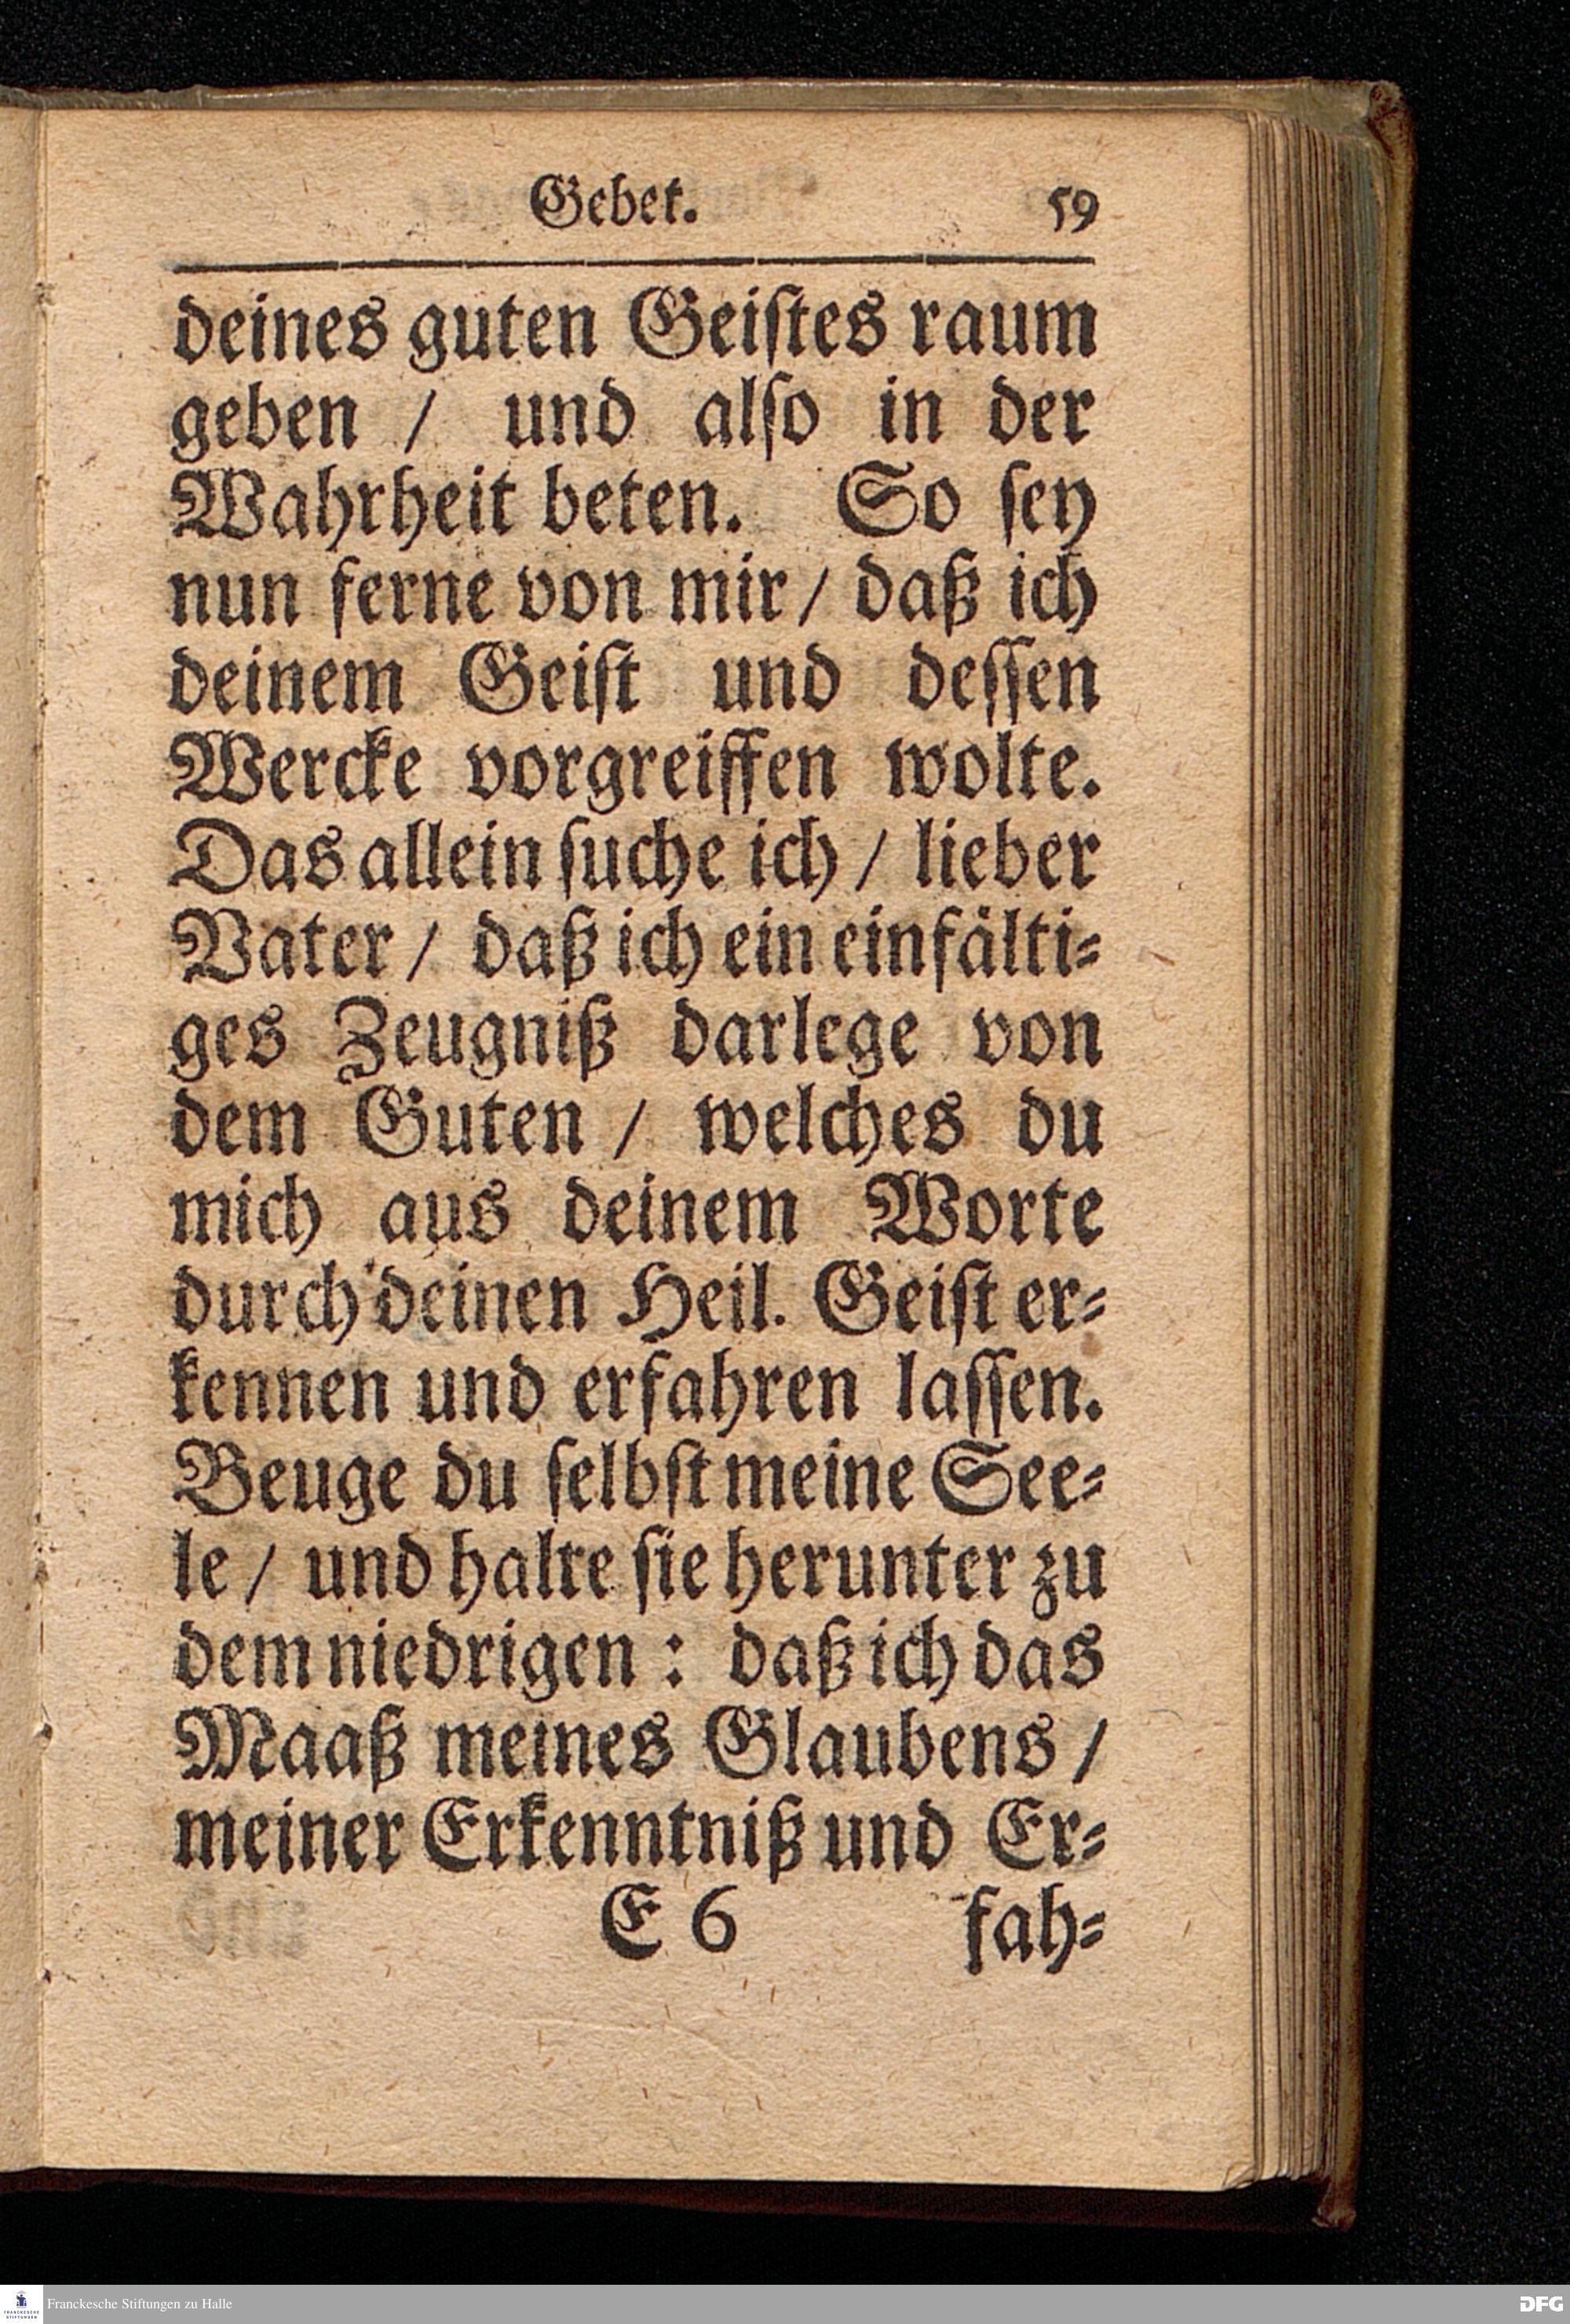 Gebet. 59
deines guten Geiſtes raum
geben / und alſo in der
Wahrheit beten. So ſey
nun ferne von mir / daß ich
deinem Geiſt und deſſen
Wercke vorgreiffen wolte.
Das allein ſuche ich / lieber
Vater / daß ich ein einfälti⸗
ges Zeugniß darlege von
dem Guten / welches du
mich aus deinem Worte
durch deinen Heil. Geiſt er⸗
kennen und erfahren laſſen.
Beuge du ſelbſt meine See⸗
le / und halte ſie herunter zu
dem niedrigen : daß ich das
Maaß meines Glaubens /
meiner Erkenntniß und Er⸗
E 6 fah⸗
FRANCKESCHE STIFTUNGEN
Franckesche Stiftungen zu Halle
DFG